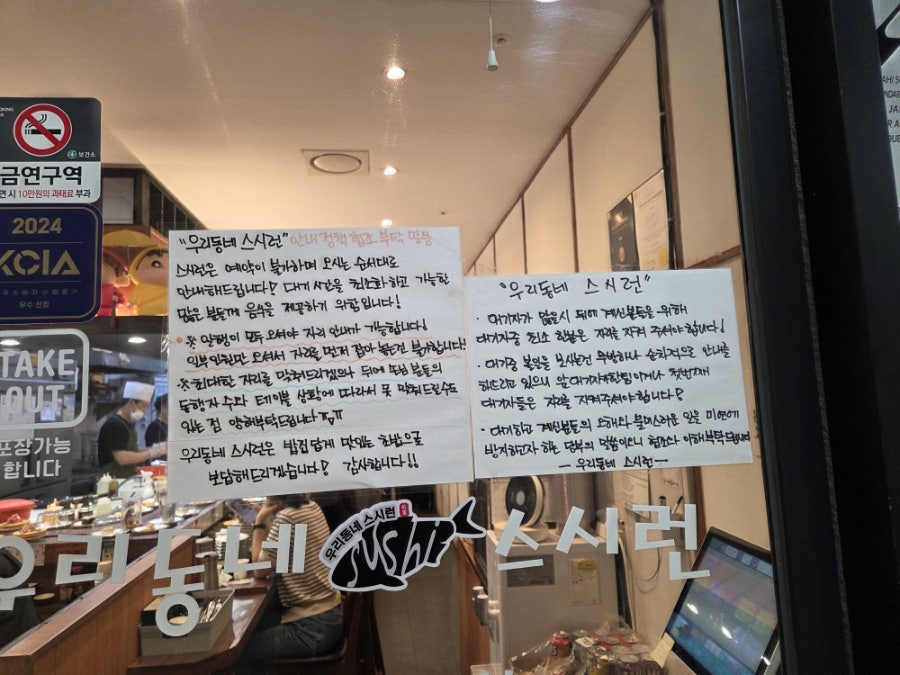 금연구역
시 10만원의 과태료 부과
보건소
2024
KCIA
우수 선정
TAKE
OUT
포장가능
합니다
"우리동네 스시런" 안내 정책 협조 부탁 말씀
스시런은 예약이 불가하며 오시는 순서대로
안내해드립니다! 대기 시간을 최소화하고 가능한
많은 분들께 음식을 제공하기 위함입니다!
일행이 모두 오셔야 자리 안내가 가능합니다!
일부인원만 오셔서 자리를 먼저 잡아 놓는건 불가합니다!
최대한 자리를 맞춰드리겠으나 뒤에 분들의
동행자 수와 테이블 상황에 따라서 못 맞춰드릴수도
있는 점 양해부탁드립니다 ㅠㅠ
우리동네 스시런은 밥집답게 맛있는 한밥으로
보답해드리겠습니다! 감사합니다!!
"우리동네 스시런"
· 대기자가 많을시 뒤에 계신분들을 위해
대기자중 최소 한분은 자리를 지켜 주셔야 합니다!
· 대기중 볼일을 보시는건 무방하나 순차적으로 안내를
하드리고 있으니 앞 대기자 한팀이거나 첫번째
대기자들은 자리를 지켜주셔야합니다!
· 대기하고 계신분들의 오해와 불미스러운 일을 미연에
방지하고자 하는 당부의 말씀이오니 협조와 이해부탁드립니다
- 우리동네 스시런 -
우리동네
우리동네스시런
sushi
스시런